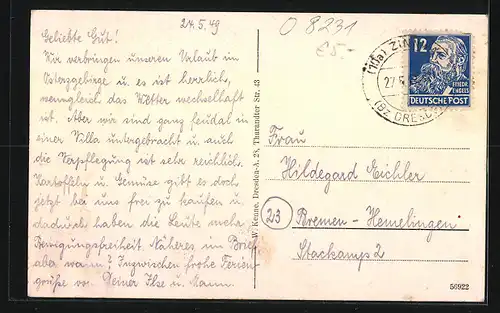 24.5.49
Geliebte Gut!
Wir verbringen unseren Urlaub im
Osterzgebirge u. es ist herrlich,
wenngleich das Wetter wechselhaft
ist. Aber wir sind ganz feudal in
einer Villa untergebracht u. auch
die Verpflegung ist sehr reichlich.
Kartoffeln u. Gemüse gibt es doch
jetzt bei uns frei zu kaufen u.
dadurch haben die Leute mehr
Bewegungsfreiheit. Näheres im Brief,
aber wann? Inzwischen frohe Ferien-
grüße von Deiner Ilse u. Mann.
W. Kenne, Dresden-A. 28, Tharandter Str. 43
O 8231
€5.-
(10a) ZIN
27.5
(Bz DRESD
12
FRIEDR
ENGELS
DEUTSCHE POST
Frau
Hildegard Eichler
23 Bremen-Hemelingen
Stackamps 2
56922